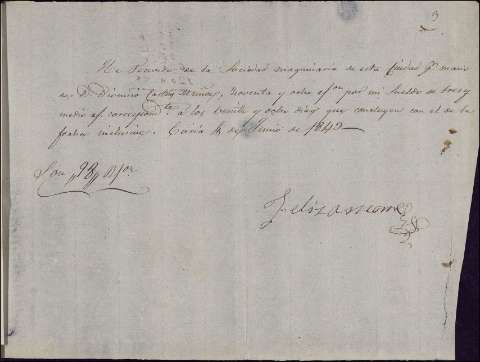 3
He Recivido de la Sociedad maquinaria de esta Ciudad Pr. mano
de D. Dionicio Castro Muñoz, noventa y ocho rs. von por mi sueldo de tres y
medio rs. correspond.te a los veinte y ocho dias que concluyen con el de la
fecha inclusive. Coria 4 de Junio de 1843
Son 98 rs von